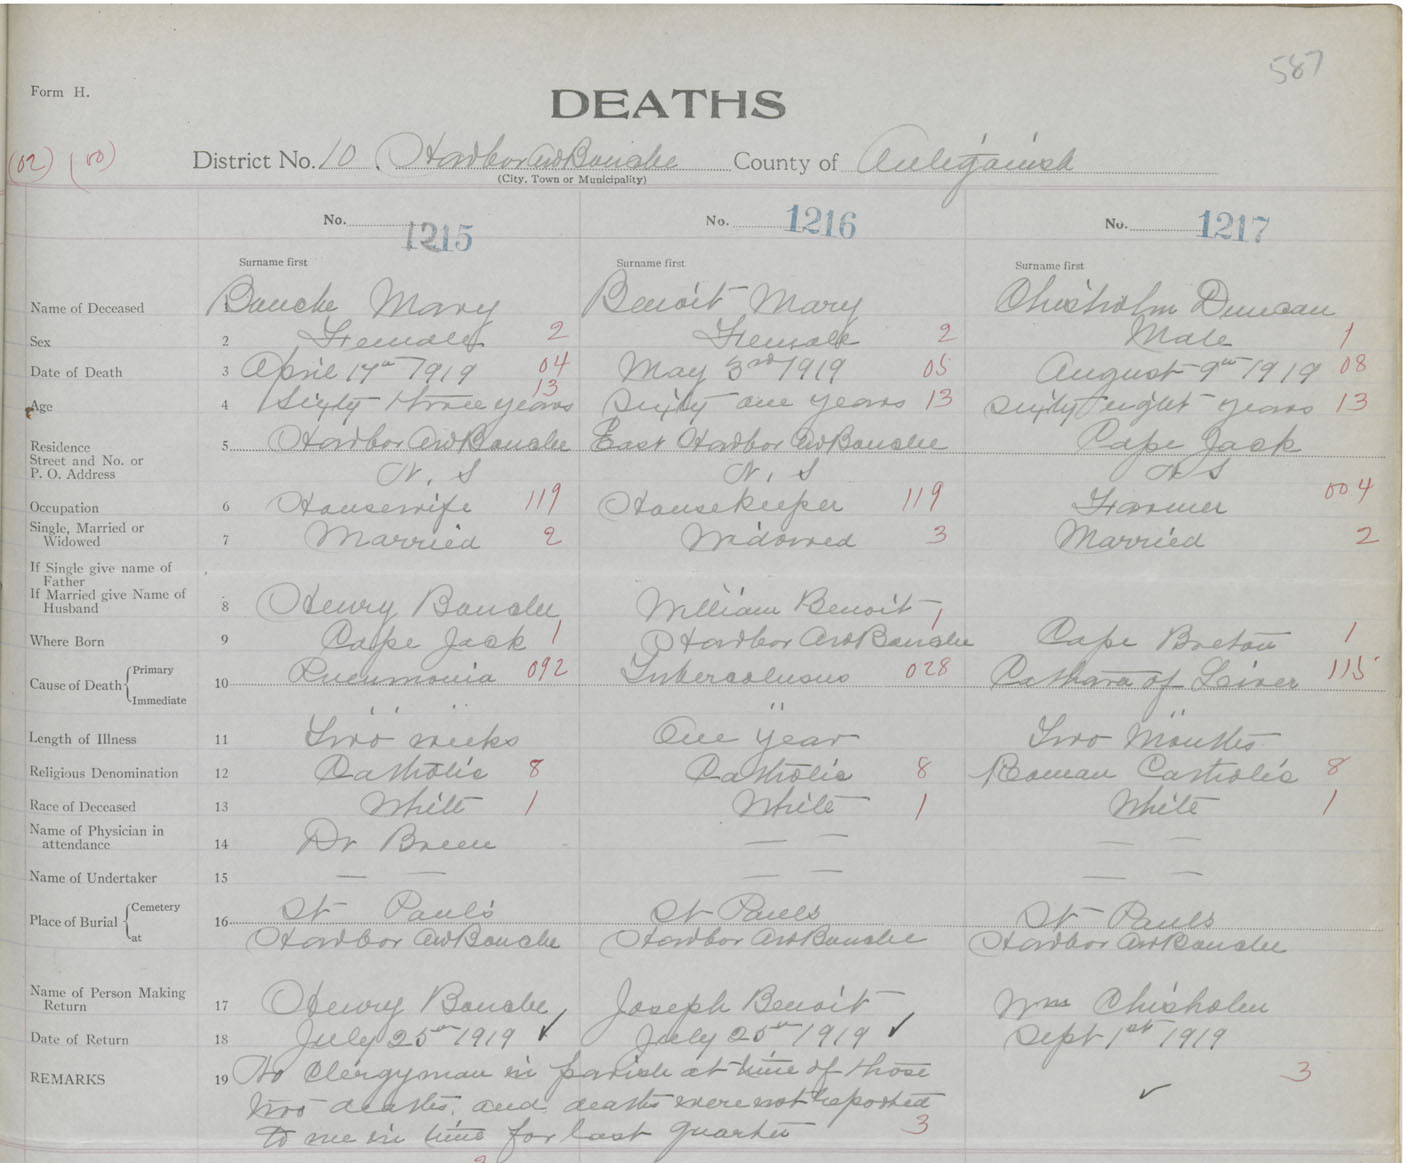 587
Form H.
DEATHS
(02) (00)
District No. 10 Harbor Au Bouche County of Antigonish
(City, Town or Municipality)
No. 1215 No. 1216 No. 1217
Surname first Surname first Surname first
Name of Deceased 1 Bouche Mary Benoit Mary Chisholm Duncan
Sex 2 Female 2 Female 2 Male 1
Date of Death 3 April 17th 1919 04 May 3rd 1919 05 August 9th 1919 08
Age 4 Sixty three years 13 Sixty one years 13 Sixty eight years 13
Residence 5 Harbor Au Bouche East Harbor Au Bouche Cape Jack
Street and No. or
P. O. Address N. S N. S N S
Occupation 6 Housewife 119 Housekeeper 119 Farmer 004
Single, Married or
Widowed 7 Married 2 Widowed 3 Married 2
If Single give name of
Father
If Married give Name of
Husband 8 Henry Bouche William Benoit
Where Born 9 Cape Jack 1 Harbor Au Bouche 1 Cape Breton 1
Cause of Death { Primary 10 Pneumonia 092 Tubercolusus 028 of Liver 115
Immediate " " " "
Length of Illness 11 Two weeks One year Two Months
Religious Denomination 12 Catholic 8 Catholic 8 Roman Catholic 8
Race of Deceased 13 White 1 White 1 White 1
Name of Physician in
attendance 14 Dr Breen — — — —
Name of Undertaker 15 — — — — — —
Place of Burial { Cemetery 16 St Paul's St Pauls St Pauls
at Harbor Au Bouche Harbor Au Bouche Harbor Au Bouche
Name of Person Making
Return 17 Henry Bouche Joseph Benoit Wm Chisholm
Date of Return 18 July 25th 1919 ✓ July 25th 1919 ✓ Sept 1st 1919
REMARKS 19 No Clergyman in parish at time of those 3
two deaths, and deaths were not reported ✓
to me in time for last quarter 3